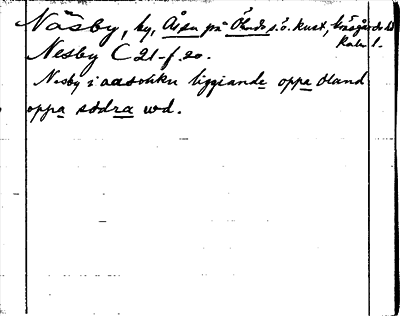 Näsby, by, Åsen på Ölands s.ö. kust, Gräsgårds hd
Kalm. l.
Nesby C 21 f. 20.
Nesby i aasokn liggiande oppa Oland
oppa södra ud.